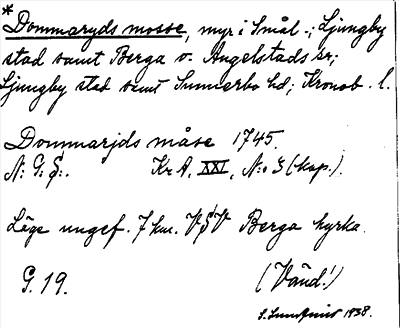 *
Dommaryds mosse, myr i Smål-; Ljungby
stad samt Berga o. Angelstads sr;
Ljungby stad samt Sunnerbo hd; Kronob. l.
Dommarjds måse 1745.
N: G: §:. Kr A. XXI, N:o 3 (kop.).
Läge ungef. 7 km. VSV Berga kyrka.
G. 19. (Vänd!)
S. Lundqvist 1938.